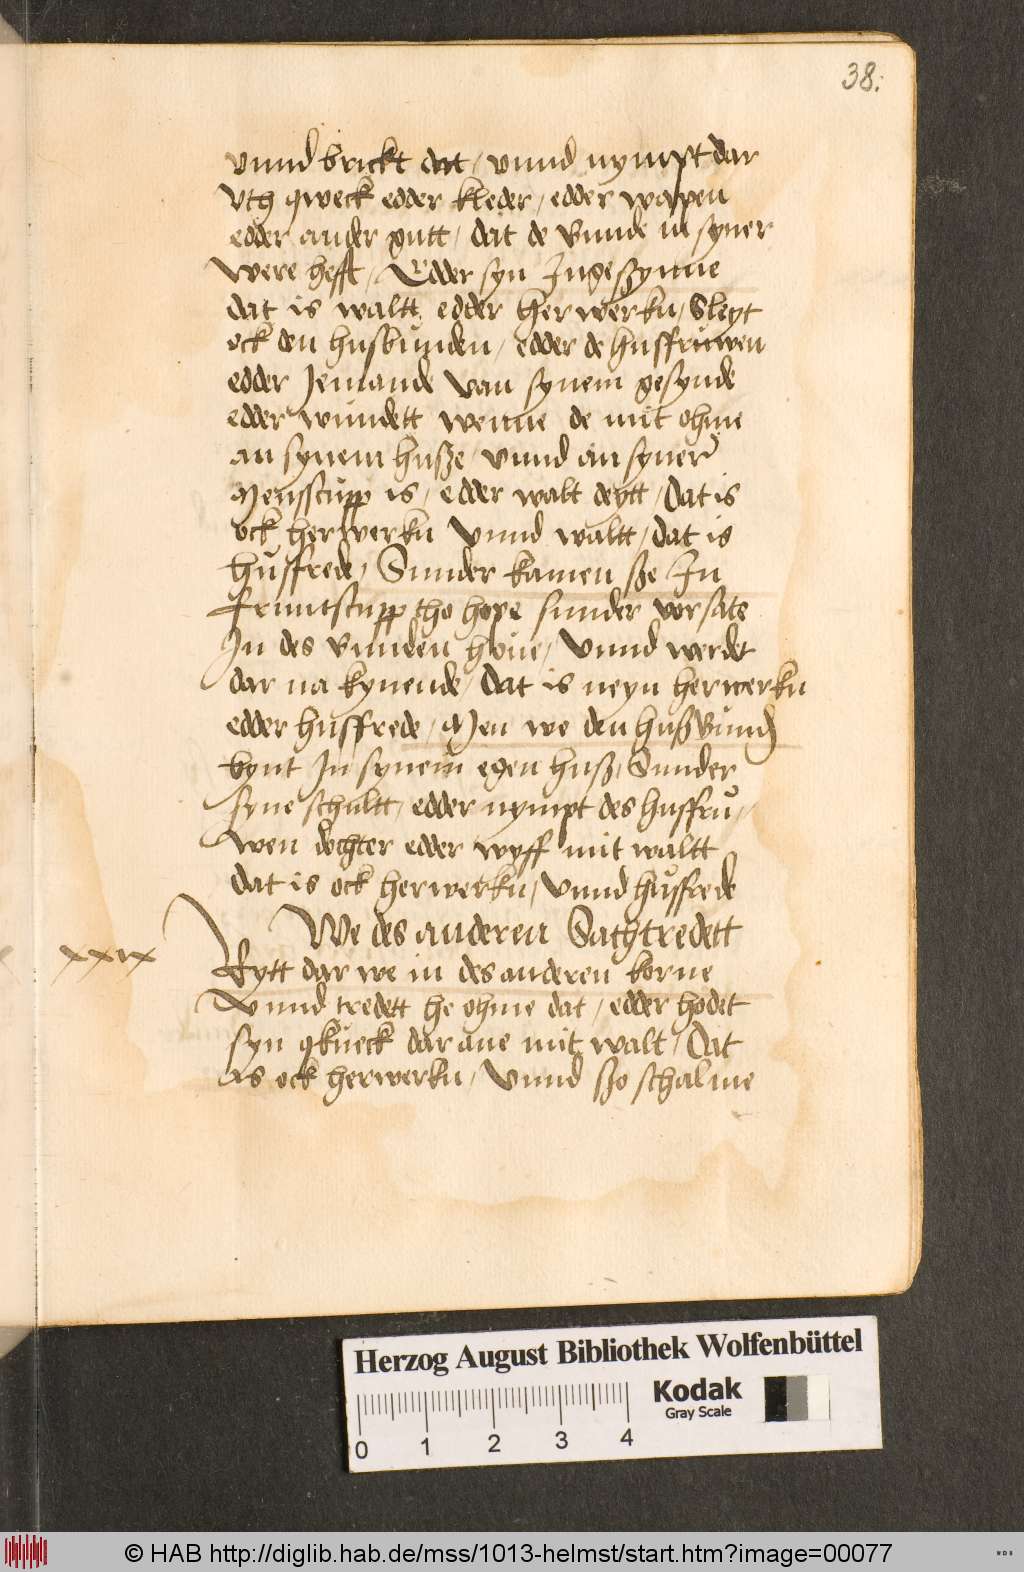 38.
vnnd brickt dat / vnnd nympt dar
vth qweck edder kleder / edder wapen
edder ander gutt / dat de bunde in syner
were hefft / Edder syn Ingeßynne
dat is waltt edder herwerku / Sleyt
ock den husbunden / edder de husfruwen
edder Jemande van synem gesynde
edder wundett wenne de mit ohme
an synem huße / vnnd an syner
Menscupp is / edder walt deytt / dat is
ock herwerku vnnd waltt / dat is
husfrede / Sunder kamen ße In
fruntscupp tho hope sunder vorsate
In des bunden houe / vnnd werdet
dar na kynende / dat is neyn herwerku
edder husfrede / Men we den hußbund
bynt In synem egen huß / Sunder
syne schultt / edder nympt des husfru /
wen dochter edder wyff mit waltt
dat is ock herwerku / vnnd husfrede
We des anderen Sath tredett
xxix
Rytt dar we in des anderen korne
Vnnd tredett he ohme dat / edder hodet
syn qkueck dar ane mit walt / Dat
is ock herwerku / Vnnd ßo schal me
Herzog August Bibliothek Wolfenbüttel
Kodak
Gray Scale
0 1 2 3 4
© HAB http://diglib.hab.de/mss/1013-helmst/start.htm?image=00077